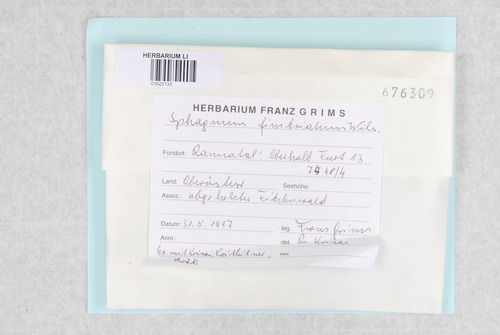 HERBARIUM LI
01622133
676309
HERBARIUM FRANZ GRIMS
Sphagnum fimbriatum Wils.
Fundort: Rannatal: Oberhalb Furth 13
7448/4
Land: Oberösterr Seehöhe:
Assoz.: abgeholzter Fichtenwald
Datum: 31.5.1997 leg. Franz Grims
Anm.: det. R. Krisai
Ex. mit Krisai,
rev.